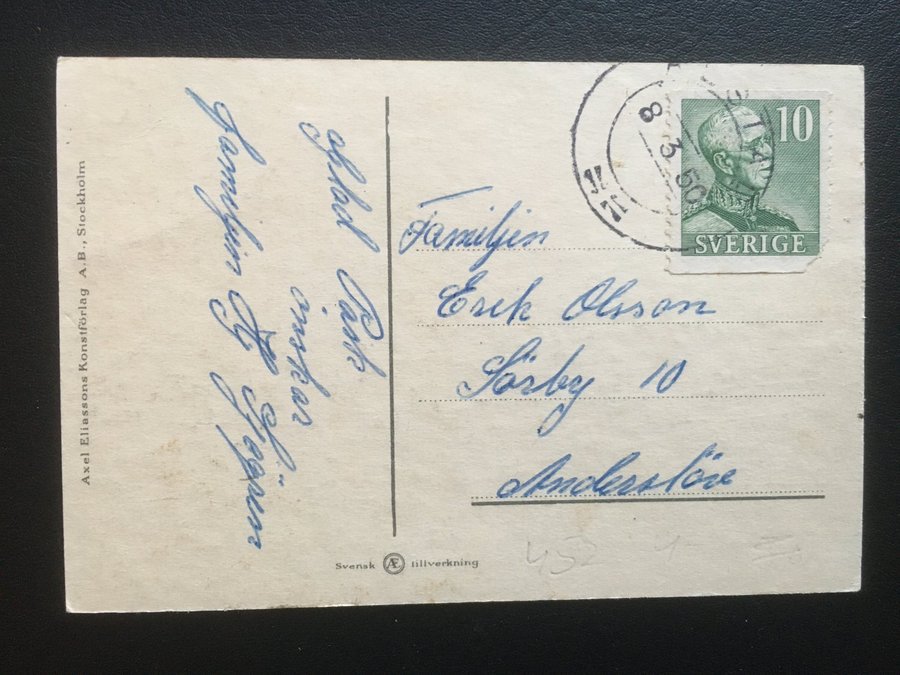 Glad Påsk
önskar
Familjen
Axel Eliassons Konstförlag A.B., Stockholm
Svensk Æ tillverkning
10
SVERIGE
8 3 50
Familjen
Erik Olsson
Sörby 10
Anderslöv
452 1